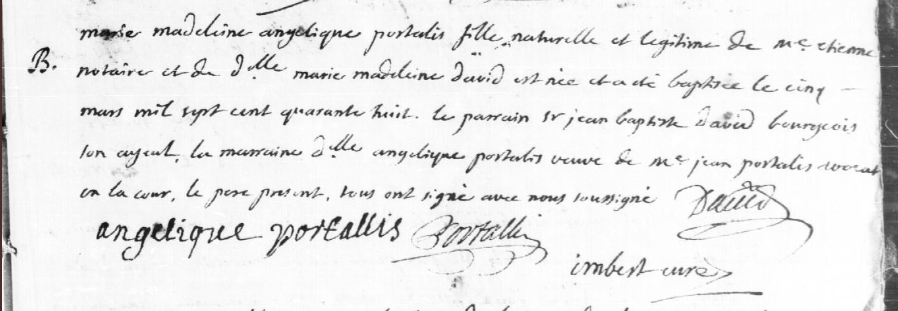 marie madeleine angelique portalis fille naturelle et legitime de Me etienne
B. notaire et de dlle marie madeleine david est née et a été baptisée le cinq
mars mil sept cent quarante huit. le parrain sr jean baptiste david bourgeois
son ayeul, la marraine dlle angelique portalis veuve de Me jean portalis avocat
en la cour, le pere present, tous ont signé avec nous soussigné David
angelique portallis Portalli
imbert curé